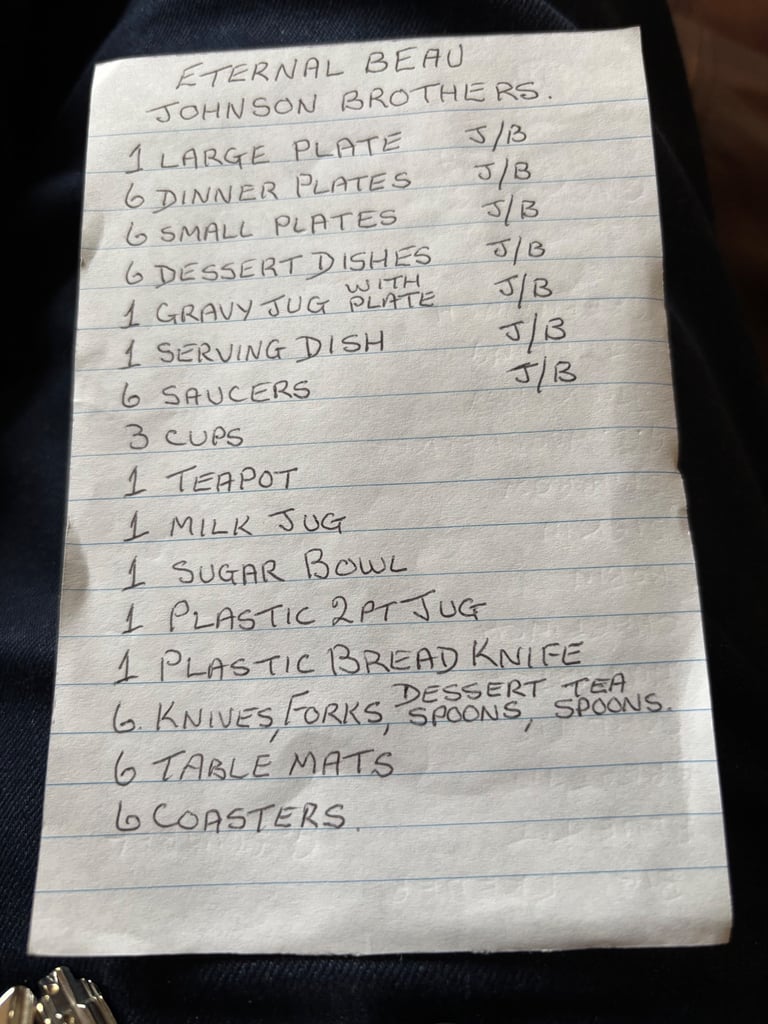 ETERNAL BEAU
JOHNSON BROTHERS.
1 LARGE PLATE J/B
6 DINNER PLATES J/B
6 SMALL PLATES J/B
6 DESSERT DISHES J/B
1 GRAVY JUG WITH PLATE J/B
1 SERVING DISH J/B
6 SAUCERS J/B
3 CUPS
1 TEAPOT
1 MILK JUG
1 SUGAR BOWL
1 PLASTIC 2PT JUG
1 PLASTIC BREAD KNIFE
6. KNIVES, FORKS, DESSERT SPOONS, TEA SPOONS.
6 TABLE MATS
6 COASTERS.